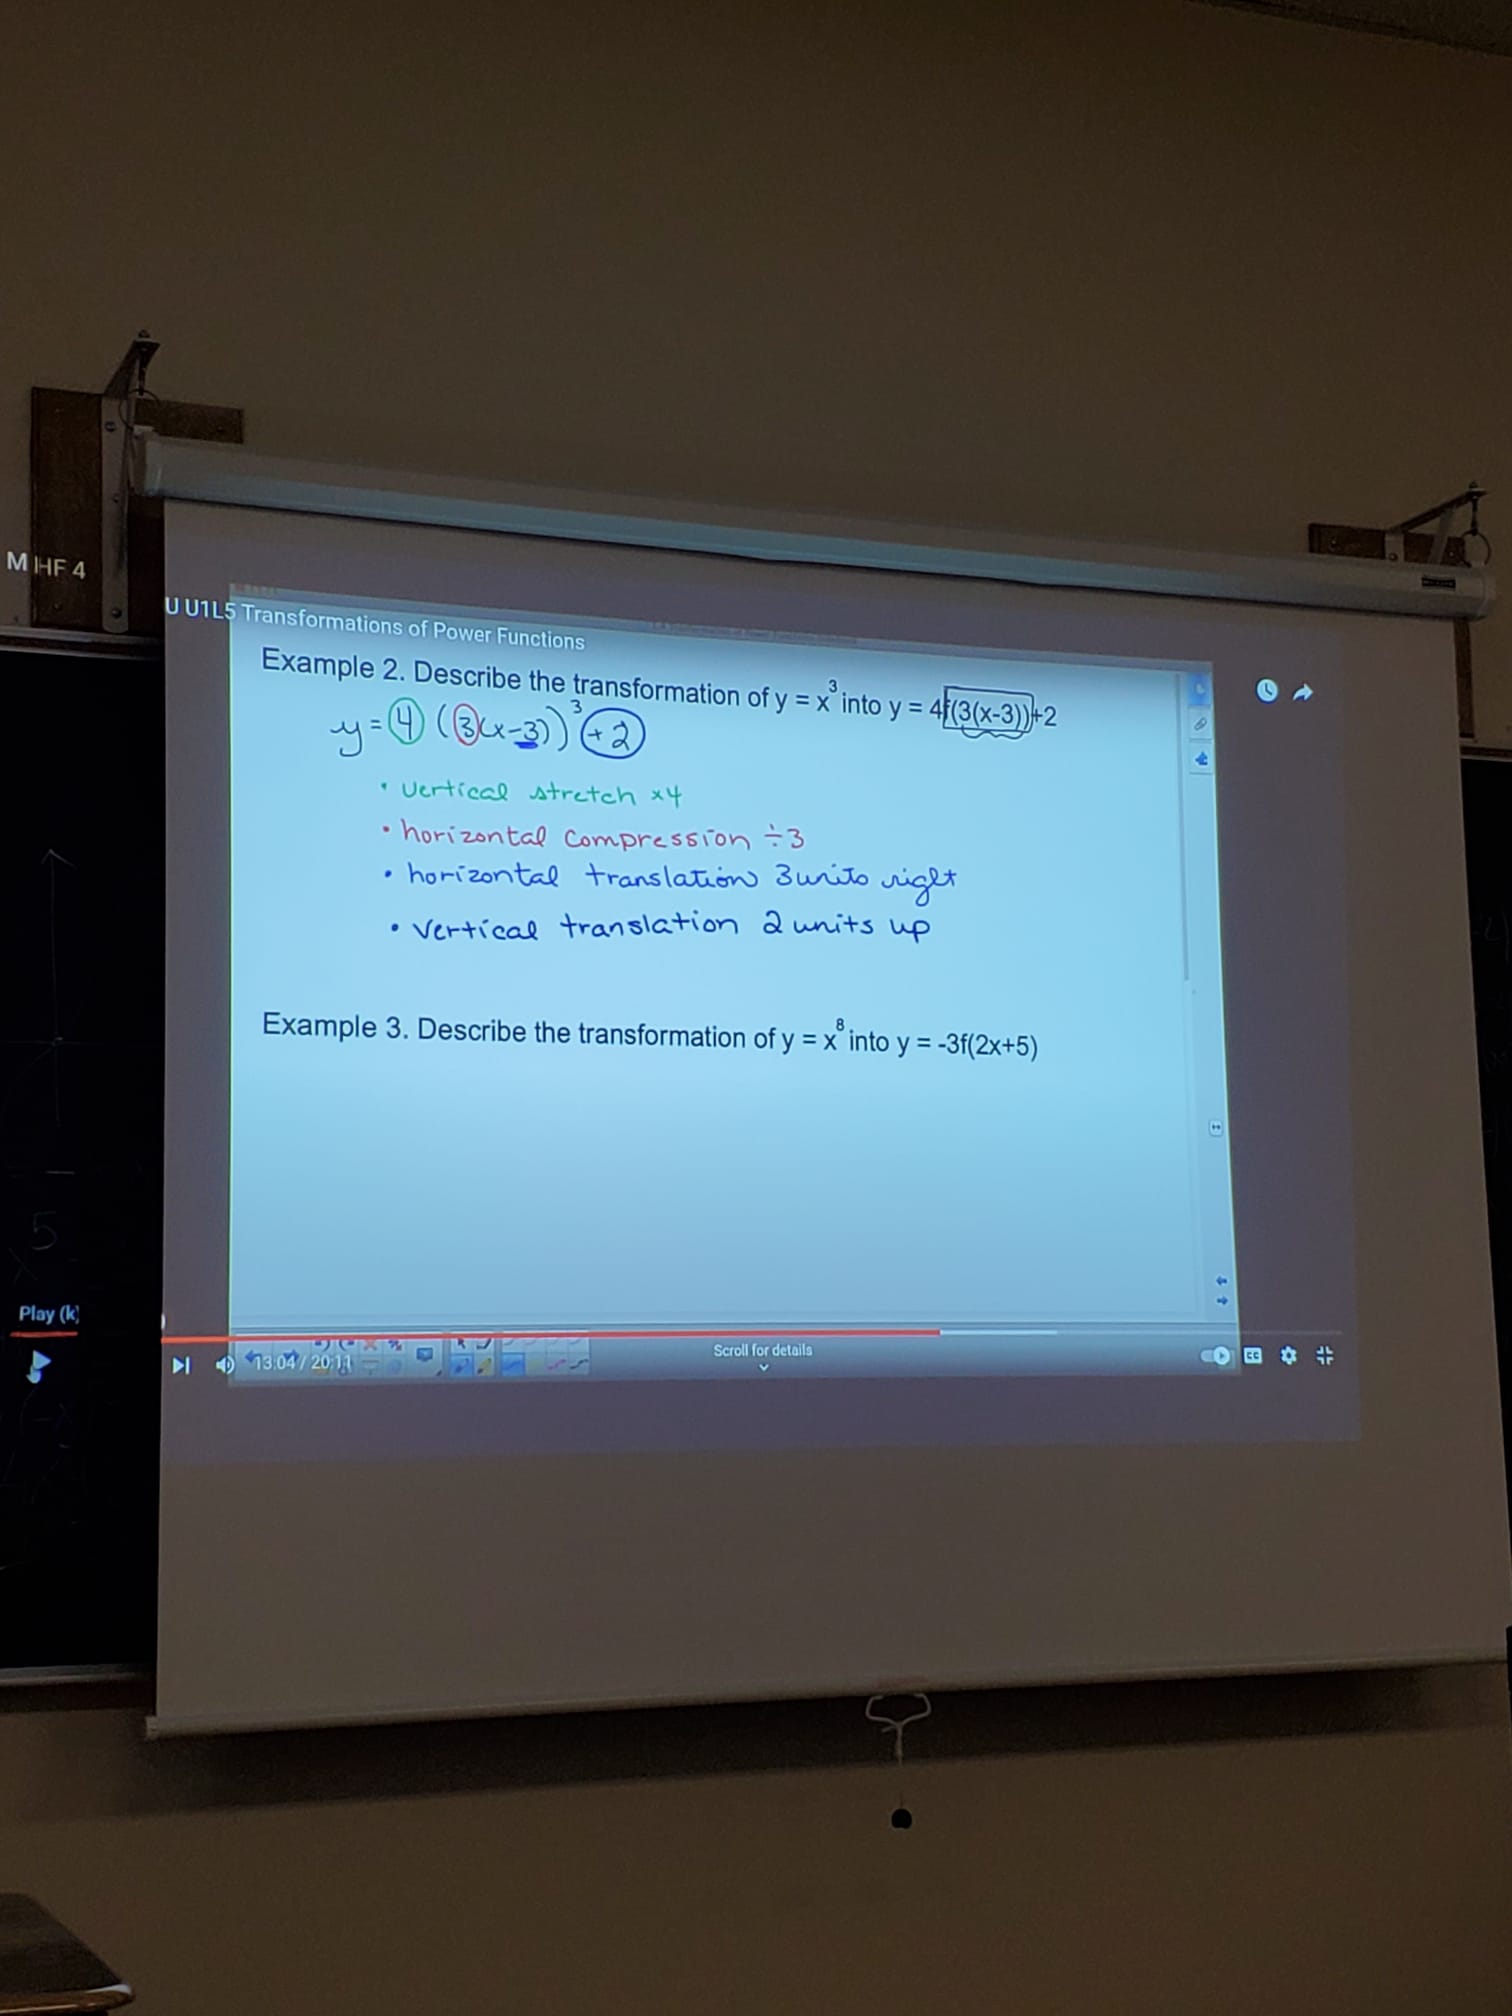 MHF 4U U1L5 Transformations of Power Functions
Example 2. Describe the transformation of y = x³ into y = 4f(3(x-3))+2
y = 4 (3(x-3))³ + 2
• vertical stretch ×4
• horizontal compression ÷3
• horizontal translation 3 units right
• vertical translation 2 units up
Example 3. Describe the transformation of y = x⁸ into y = -3f(2x+5)
Play (k)
13:04 / 20:11
Scroll for details
CC
5